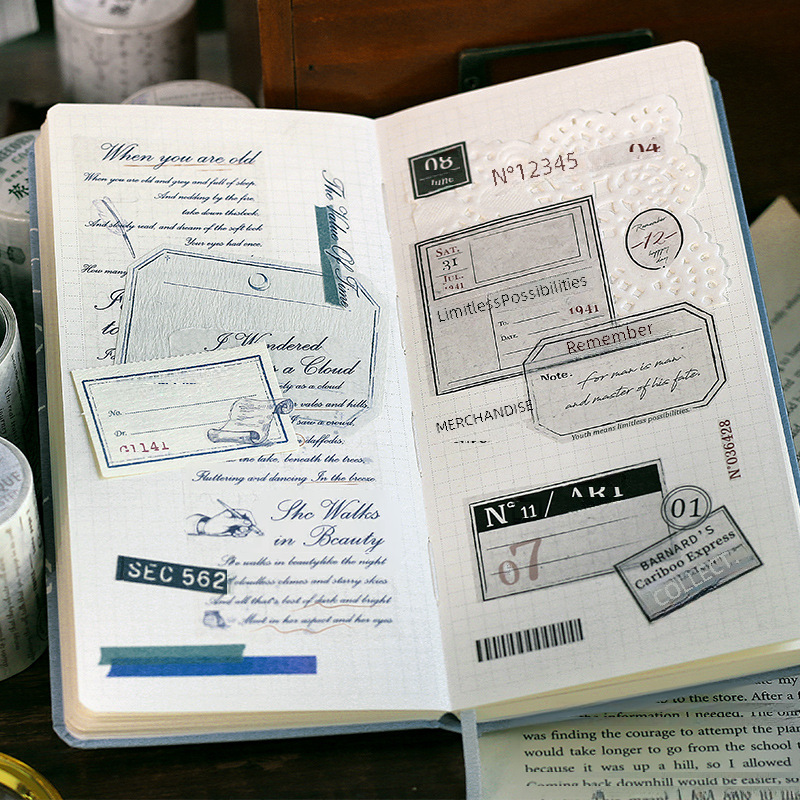 When you are old
When you are old and grey and full of sleep.
And nodding by the fire,
take down thisbook.
And slowly read, and dream of the soft look
Your eyes had once,
How many
I Wondered
as a Cloud
as a cloud
vales and hills,
I saw a crowd,
daffodils;
lake, beneath the trees,
Fluttering and dancing In the breeze
No.
Dr.
G1141
She Walks
in Beauty
She walks in beautylike the night
cloudless climes and starry skies
And all that's best of dark and bright
Meet in her aspect and her eyes
SEC 562
08
TIME
Nº12345
04
Remember
-12-
SAT.
31
JUL.
1941
LimitlessPossibilities
To.
1941
Date.
Remember
Note. For man is man
and master of his fate.
Youth means limitless possibilities.
MERCHANDISE
Nº036428
Nº 11 / ART
07
01
BARNARD'S
Cariboo Express
COLLECT.
to the store. After a f
the information I needed. The only
was finding the courage to attempt the plan
would take longer to go from the school t
because it was up a hill, so I allowed
Coming back downhill would be easier, so